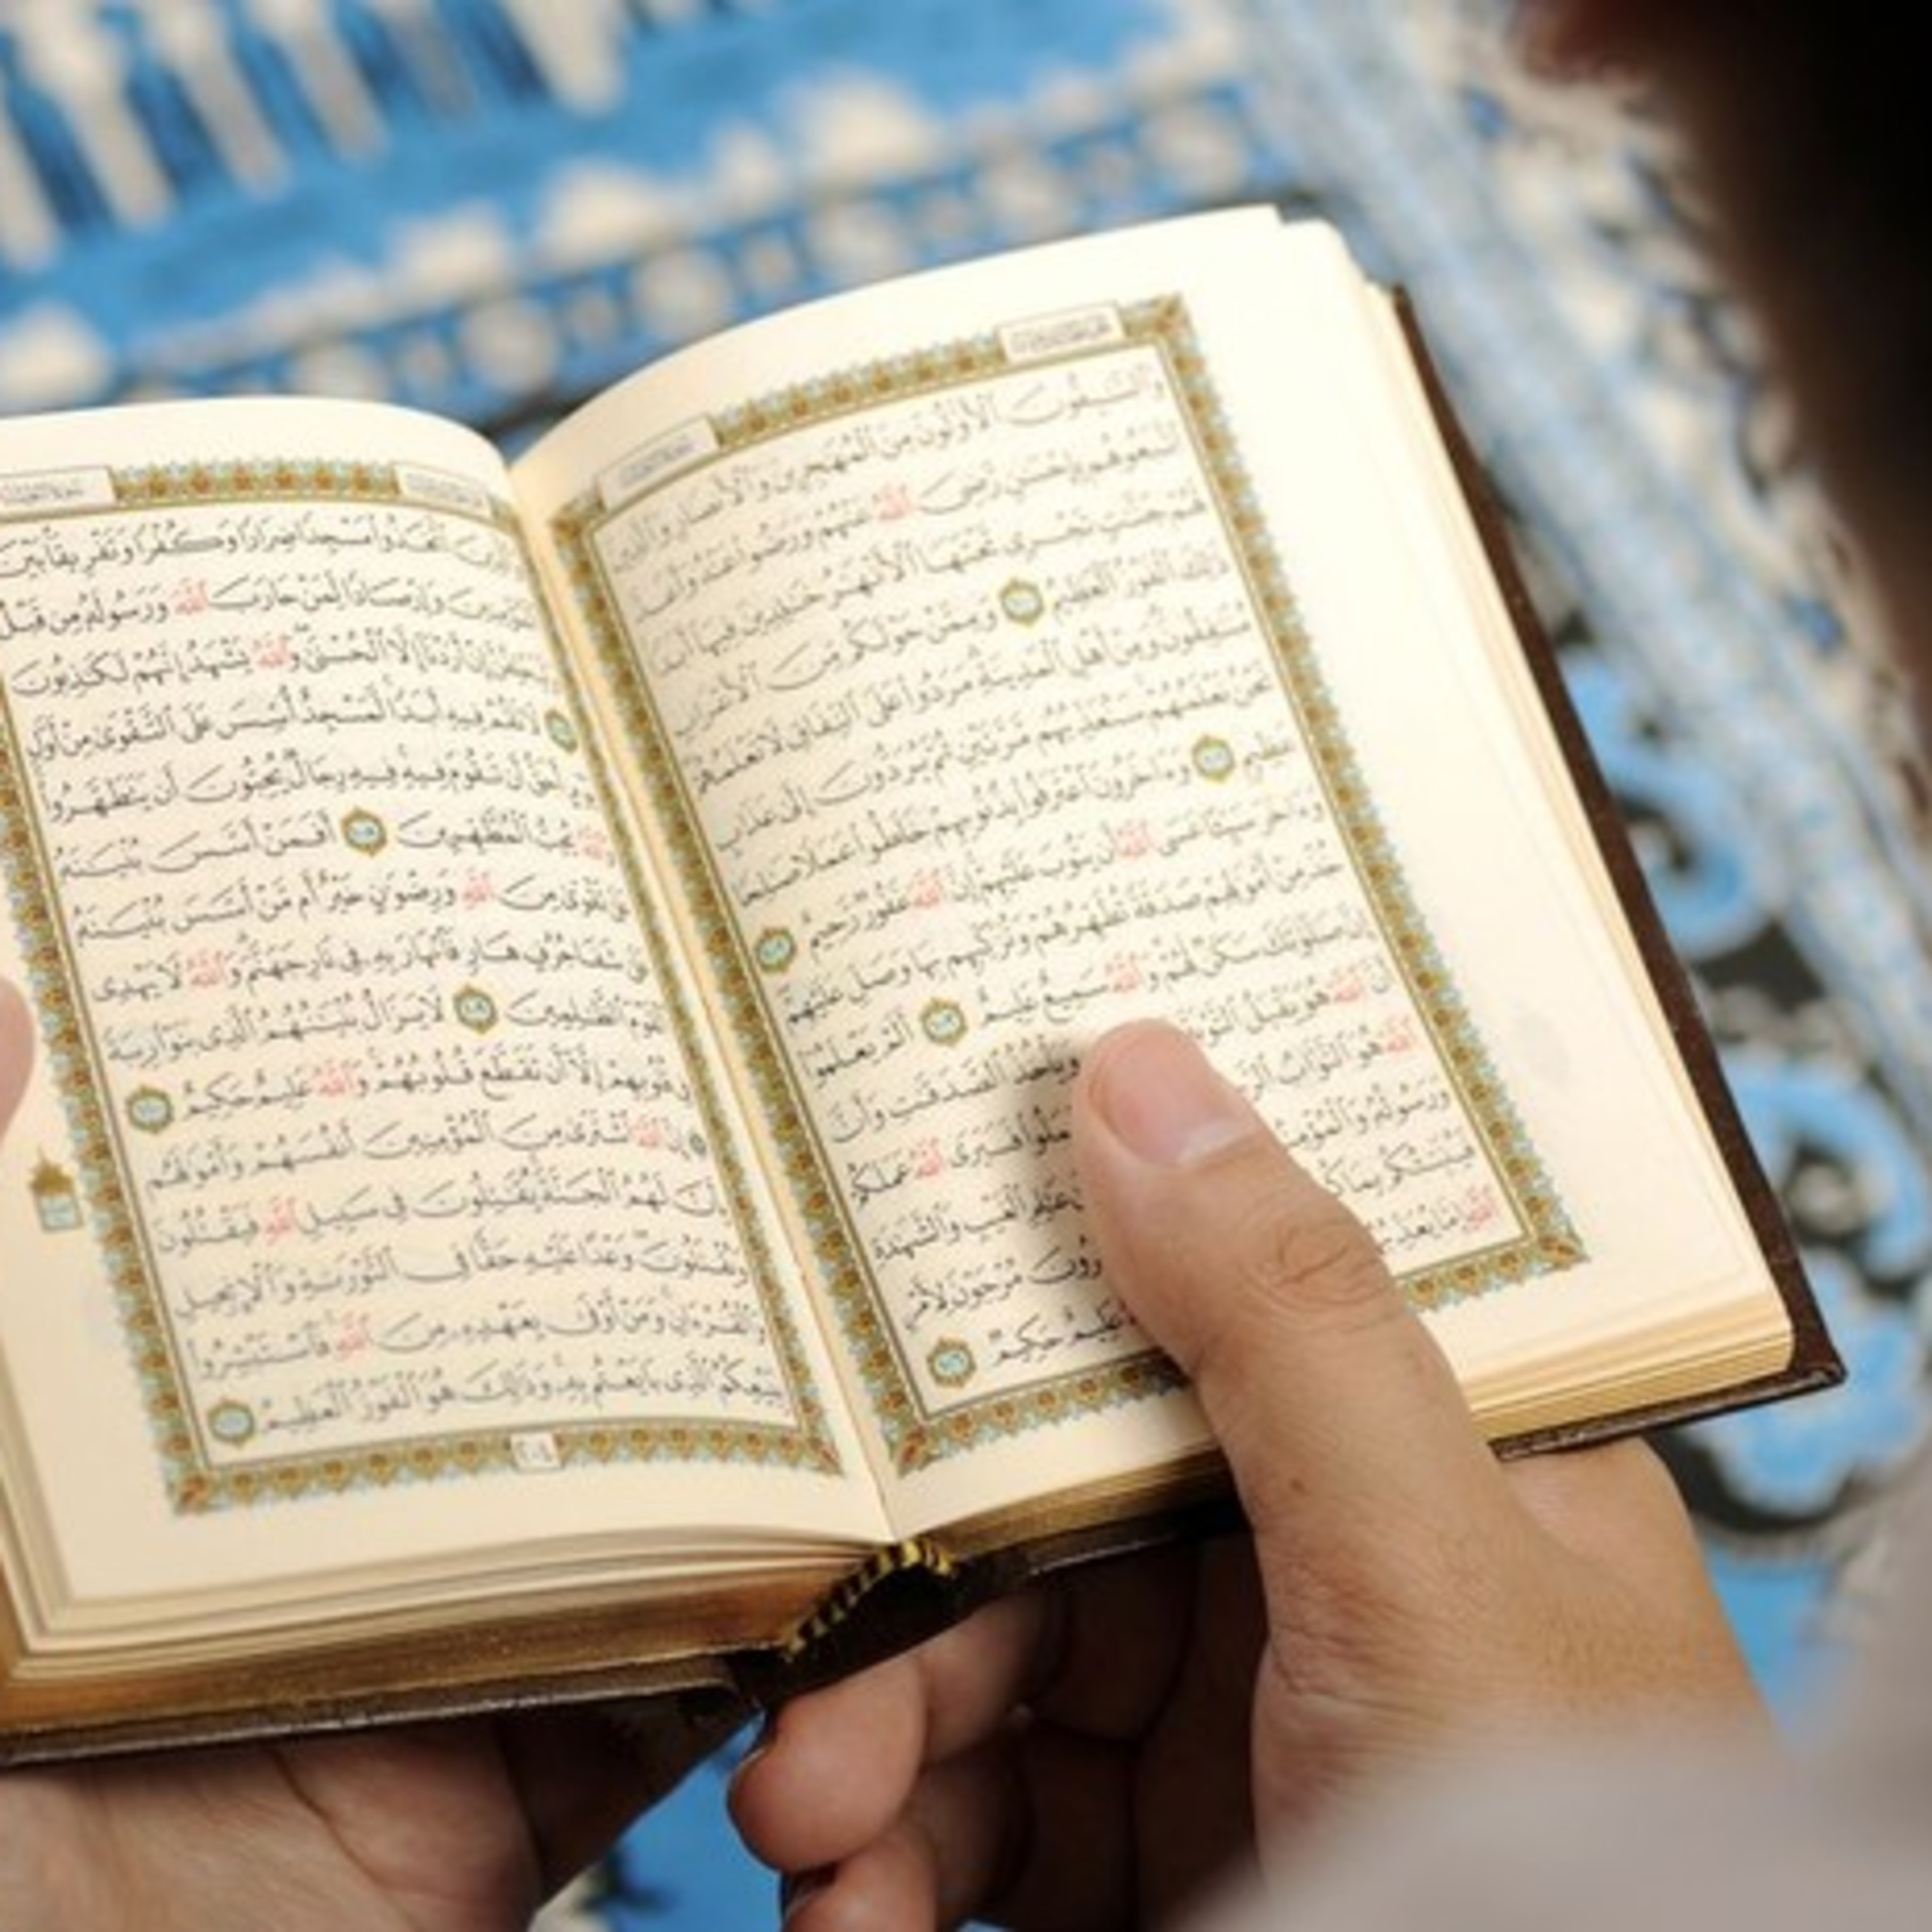 وَٱلسَّٰبِقُونَ ٱلْأَوَّلُونَ مِنَ ٱلْمُهَٰجِرِينَ وَٱلْأَنصَارِ وَٱلَّذِينَ
ٱتَّبَعُوهُم بِإِحْسَٰنٍ رَّضِىَ ٱللَّهُ عَنْهُمْ وَرَضُوا۟ عَنْهُ وَأَعَدَّ
لَهُمْ جَنَّٰتٍ تَجْرِى تَحْتَهَا ٱلْأَنْهَٰرُ خَٰلِدِينَ فِيهَآ أَبَدًا
ذَٰلِكَ ٱلْفَوْزُ ٱلْعَظِيمُ ١٠٠ وَمِمَّنْ حَوْلَكُم مِّنَ ٱلْأَعْرَابِ
مُنَٰفِقُونَ وَمِنْ أَهْلِ ٱلْمَدِينَةِ مَرَدُوا۟ عَلَى ٱلنِّفَاقِ لَا تَعْلَمُهُمْ
نَحْنُ نَعْلَمُهُمْ سَنُعَذِّبُهُم مَّرَّتَيْنِ ثُمَّ يُرَدُّونَ إِلَىٰ عَذَابٍ
عَظِيمٍ ١٠١ وَءَاخَرُونَ ٱعْتَرَفُوا۟ بِذُنُوبِهِمْ خَلَطُوا۟ عَمَلًا صَٰلِحًا
وَءَاخَرَ سَيِّئًا عَسَى ٱللَّهُ أَن يَتُوبَ عَلَيْهِمْ إِنَّ ٱللَّهَ غَفُورٌ رَّحِيمٌ ١٠٢
خُذْ مِنْ أَمْوَٰلِهِمْ صَدَقَةً تُطَهِّرُهُمْ وَتُزَكِّيهِم بِهَا وَصَلِّ عَلَيْهِمْ
إِنَّ صَلَوٰتَكَ سَكَنٌ لَّهُمْ وَٱللَّهُ سَمِيعٌ عَلِيمٌ ١٠٣ أَلَمْ يَعْلَمُوٓا۟
أَنَّ ٱللَّهَ هُوَ يَقْبَلُ ٱلتَّوْبَةَ وَيَأْخُذُ ٱلصَّدَقَٰتِ وَأَنَّ
ٱللَّهَ هُوَ ٱلتَّوَّابُ فَسَيَرَى ٱللَّهُ عَمَلَكُمْ
وَرَسُولُهُۥ ٱلْغَيْبِ وَٱلشَّهَٰدَةِ
فَيُنَبِّئُكُم بِمَا مُرْجَوْنَ لِأَمْرِ
ٱللَّهِ إِمَّا عَلِيمٌ حَكِيمٌ ١٠٦
وَٱلَّذِينَ ٱتَّخَذُوا۟ مَسْجِدًا ضِرَارًا وَكُفْرًا وَتَفْرِيقًۢا بَيْنَ
ٱلْمُؤْمِنِينَ وَإِرْصَادًا لِّمَنْ حَارَبَ ٱللَّهَ وَرَسُولَهُۥ مِن قَبْلُ
وَلَيَحْلِفُنَّ إِنْ أَرَدْنَآ إِلَّا ٱلْحُسْنَىٰ وَٱللَّهُ يَشْهَدُ إِنَّهُمْ لَكَٰذِبُونَ
١٠٧ لَا تَقُمْ فِيهِ أَبَدًا لَّمَسْجِدٌ أُسِّسَ عَلَى ٱلتَّقْوَىٰ مِنْ أَوَّلِ
يَوْمٍ أَحَقُّ أَن تَقُومَ فِيهِ فِيهِ رِجَالٌ يُحِبُّونَ أَن يَتَطَهَّرُوا۟
وَٱللَّهُ يُحِبُّ ٱلْمُطَّهِّرِينَ ١٠٨ أَفَمَنْ أَسَّسَ بُنْيَٰنَهُۥ
عَلَىٰ تَقْوَىٰ مِنَ ٱللَّهِ وَرِضْوَٰنٍ خَيْرٌ أَم مَّنْ أَسَّسَ بُنْيَٰنَهُۥ
عَلَىٰ شَفَا جُرُفٍ هَارٍ فَٱنْهَارَ بِهِۦ فِى نَارِ جَهَنَّمَ وَٱللَّهُ لَا يَهْدِى
ٱلْقَوْمَ ٱلظَّٰلِمِينَ ١٠٩ لَا يَزَالُ بُنْيَٰنُهُمُ ٱلَّذِى بَنَوْا۟ رِيبَةً
فِى قُلُوبِهِمْ إِلَّآ أَن تَقَطَّعَ قُلُوبُهُمْ وَٱللَّهُ عَلِيمٌ حَكِيمٌ ١١٠
إِنَّ ٱللَّهَ ٱشْتَرَىٰ مِنَ ٱلْمُؤْمِنِينَ أَنفُسَهُمْ وَأَمْوَٰلَهُم
بِأَنَّ لَهُمُ ٱلْجَنَّةَ يُقَٰتِلُونَ فِى سَبِيلِ ٱللَّهِ فَيَقْتُلُونَ
وَيُقْتَلُونَ وَعْدًا عَلَيْهِ حَقًّا فِى ٱلتَّوْرَىٰةِ وَٱلْإِنجِيلِ
وَٱلْقُرْءَانِ وَمَنْ أَوْفَىٰ بِعَهْدِهِۦ مِنَ ٱللَّهِ فَٱسْتَبْشِرُوا۟
بِبَيْعِكُمُ ٱلَّذِى بَايَعْتُم بِهِۦ وَذَٰلِكَ هُوَ ٱلْفَوْزُ ٱلْعَظِيمُ ١١١
٢٠٤